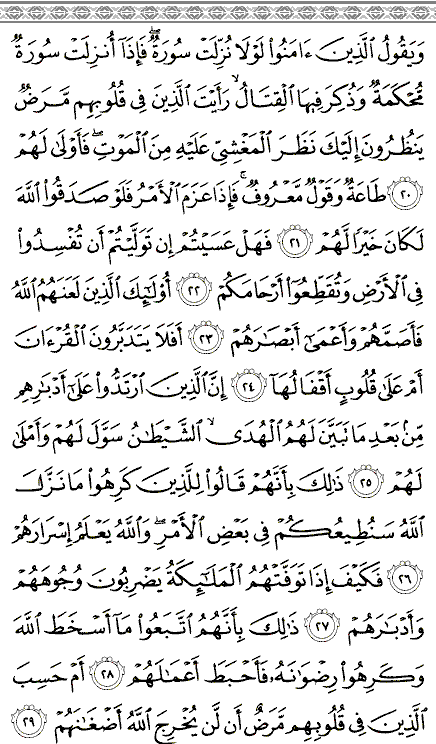 وَيَقُولُ ٱلَّذِينَ ءَامَنُوا۟ لَوْلَا نُزِّلَتْ سُورَةٌ ۖ فَإِذَآ أُنزِلَتْ سُورَةٌ
مُّحْكَمَةٌ وَذُكِرَ فِيهَا ٱلْقِتَالُ ۙ رَأَيْتَ ٱلَّذِينَ فِى قُلُوبِهِم مَّرَضٌ
يَنظُرُونَ إِلَيْكَ نَظَرَ ٱلْمَغْشِىِّ عَلَيْهِ مِنَ ٱلْمَوْتِ ۖ فَأَوْلَىٰ لَهُمْ
٢٠ طَاعَةٌ وَقَوْلٌ مَّعْرُوفٌ ۚ فَإِذَا عَزَمَ ٱلْأَمْرُ فَلَوْ صَدَقُوا۟ ٱللَّهَ
لَكَانَ خَيْرًا لَّهُمْ ٢١ فَهَلْ عَسَيْتُمْ إِن تَوَلَّيْتُمْ أَن تُفْسِدُوا۟
فِى ٱلْأَرْضِ وَتُقَطِّعُوٓا۟ أَرْحَامَكُمْ ٢٢ أُو۟لَـٰٓئِكَ ٱلَّذِينَ لَعَنَهُمُ ٱللَّهُ
فَأَصَمَّهُمْ وَأَعْمَىٰٓ أَبْصَـٰرَهُمْ ٢٣ أَفَلَا يَتَدَبَّرُونَ ٱلْقُرْءَانَ
أَمْ عَلَىٰ قُلُوبٍ أَقْفَالُهَآ ٢٤ إِنَّ ٱلَّذِينَ ٱرْتَدُّوا۟ عَلَىٰٓ أَدْبَـٰرِهِم
مِّنۢ بَعْدِ مَا تَبَيَّنَ لَهُمُ ٱلْهُدَى ۙ ٱلشَّيْطَـٰنُ سَوَّلَ لَهُمْ وَأَمْلَىٰ
لَهُمْ ٢٥ ذَٰلِكَ بِأَنَّهُمْ قَالُوا۟ لِلَّذِينَ كَرِهُوا۟ مَا نَزَّلَ
ٱللَّهُ سَنُطِيعُكُمْ فِى بَعْضِ ٱلْأَمْرِ ۖ وَٱللَّهُ يَعْلَمُ إِسْرَارَهُمْ
٢٦ فَكَيْفَ إِذَا تَوَفَّتْهُمُ ٱلْمَلَـٰٓئِكَةُ يَضْرِبُونَ وُجُوهَهُمْ
وَأَدْبَـٰرَهُمْ ٢٧ ذَٰلِكَ بِأَنَّهُمُ ٱتَّبَعُوا۟ مَآ أَسْخَطَ ٱللَّهَ
وَكَرِهُوا۟ رِضْوَٰنَهُۥ فَأَحْبَطَ أَعْمَـٰلَهُمْ ٢٨ أَمْ حَسِبَ
ٱلَّذِينَ فِى قُلُوبِهِم مَّرَضٌ أَن لَّن يُخْرِجَ ٱللَّهُ أَضْغَـٰنَهُمْ ٢٩